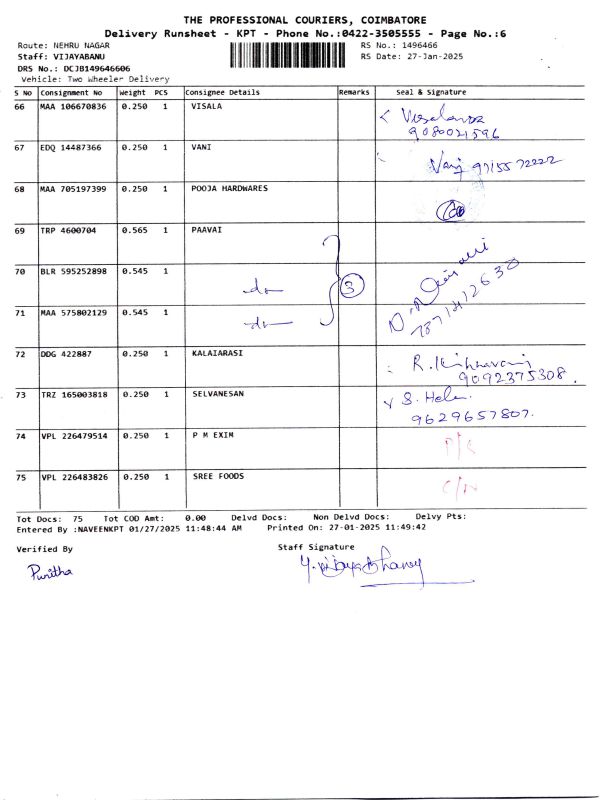 THE PROFESSIONAL COURIERS, COIMBATORE
Delivery Runsheet - KPT - Phone No.:0422-3505555 - Page No.:6
Route: NEHRU NAGAR RS No.: 1496466
Staff: VIJAYABANU RS Date: 27-Jan-2025
DRS No.: DCJB149646606
Vehicle: Two Wheeler Delivery
S No Consignment No Weight PCS Consignee Details Remarks Seal & Signature
66 MAA 106670836 0.250 1 VISALA
9080021596
67 EDQ 14487366 0.250 1 VANI Vani 9715572222
68 MAA 705197399 0.250 1 POOJA HARDWARES
69 TRP 4600704 0.565 1 PAAVAI
70 BLR 595252898 0.545 1 do 3
71 MAA 575802129 0.545 1 do 7871412630
72 DDG 422887 0.250 1 KALAIARASI R.
9092375308.
73 TRZ 165003818 0.250 1 SELVANESAN S. Helen
9629657807.
74 VPL 226479514 0.250 1 P M EXIM P/C
75 VPL 226483826 0.250 1 SREE FOODS C/N
Tot Docs: 75 Tot COD Amt: 0.00 Delvd Docs: Non Delvd Docs: Delvy Pts:
Entered By :NAVEENKPT 01/27/2025 11:48:44 AM Printed On: 27-01-2025 11:49:42
Verified By Staff Signature
Punitha